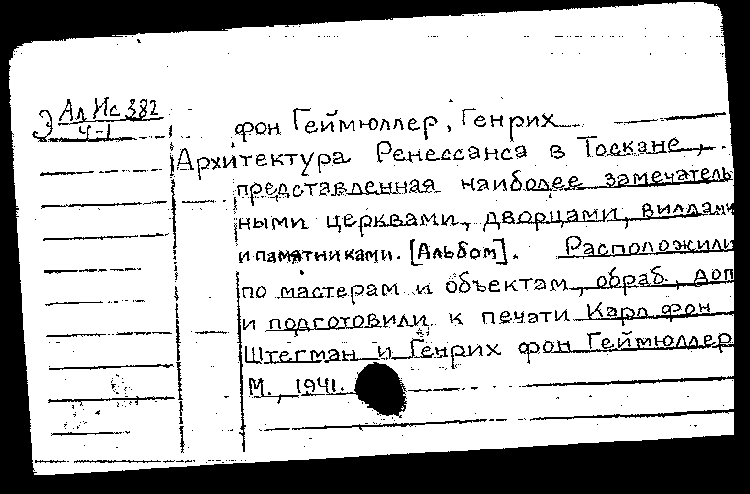 Э Ал Ис 382
Ч-1
фон Геймюллер, Генрих
Архитектура Ренессанса в Тоскане,
представленная наиболее замечатель
ными церквами, дворцами, виллами
и памятниками. [Альбом]. Расположили
по мастерам и объектам, обраб., доп
и подготовили к печати Карл фон
Штегман и Генрих фон Геймюллер
М., 1941.